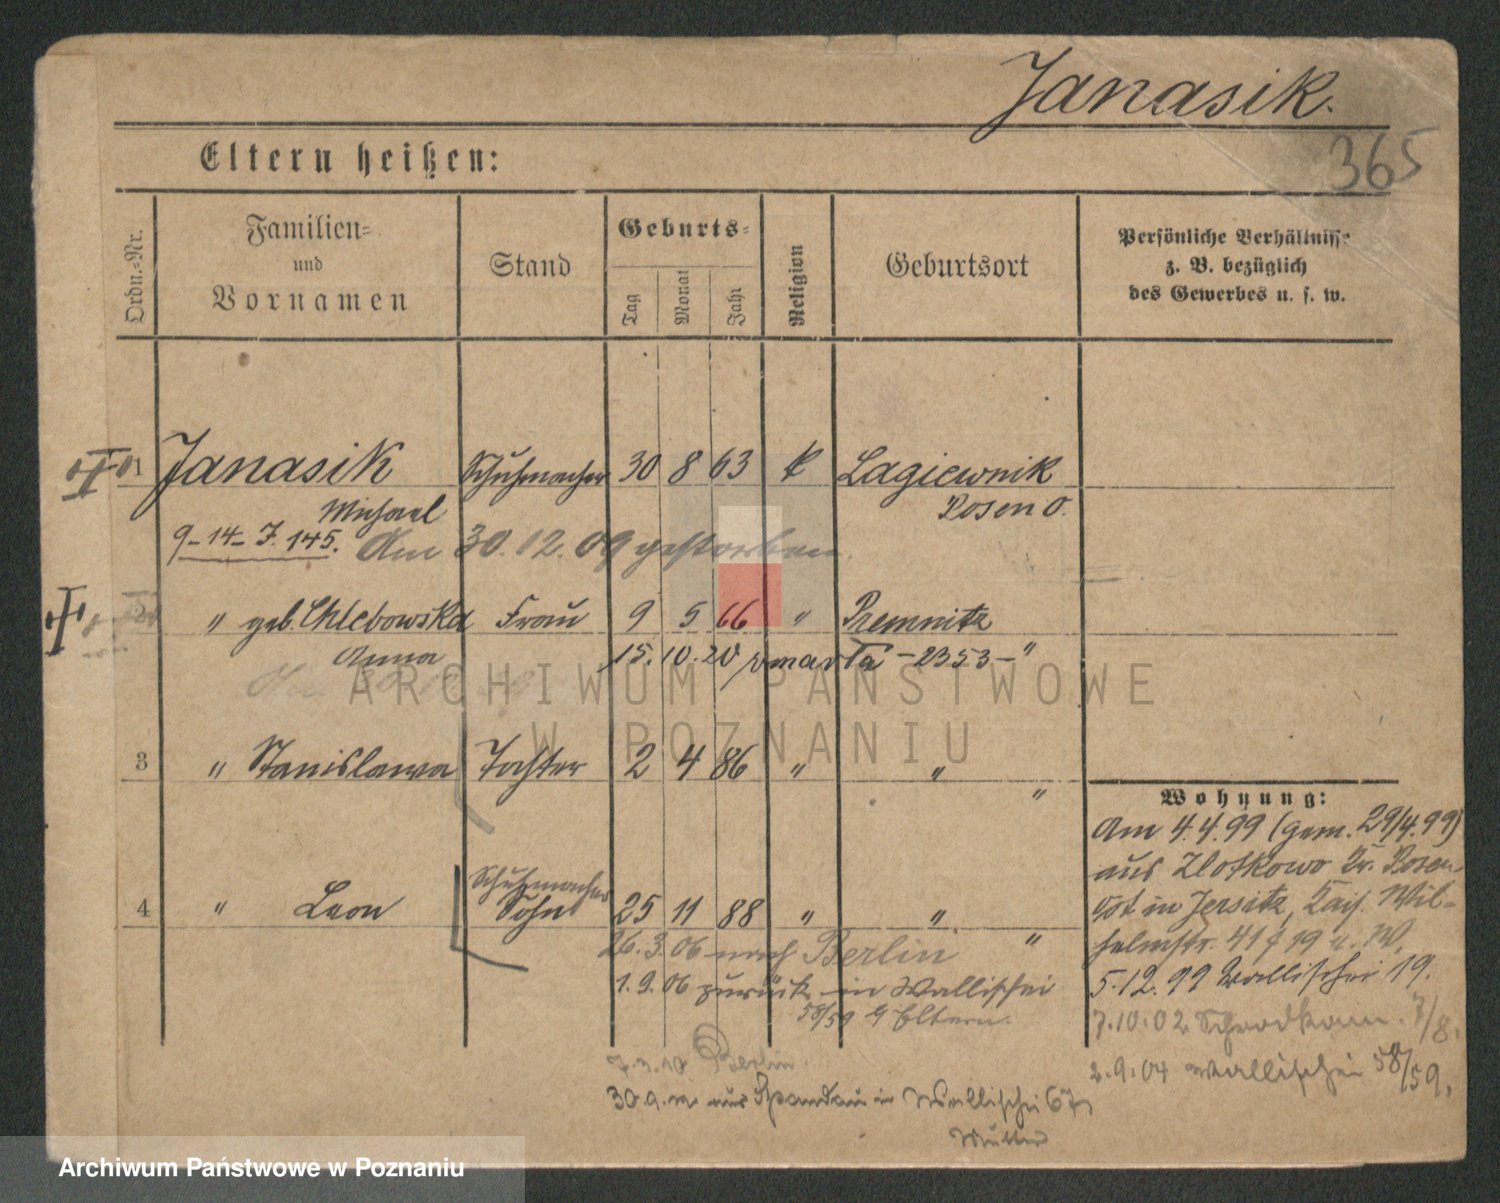 Janasik.
365
Eltern heißen:
Ordn.=Nr.
Familien=
und
Vornamen
Stand
Geburts=
Tag
Monat
Jahr
Religion
Geburtsort
Persönliche Verhältnisse
z. B. bezüglich
des Gewerbes u. s. w.
1 Janasik Schuhmacher 30 8 63 k Lagiewnik
Michael Posen O.
9-14-7.145. Am 30.12.09 gestorben.
2 " geb. Chlebowska Frau 9 5 66 " Premnitz
Anna 15.10.20 zmarła -2353- "
ARCHIWUM PAŃSTWOWE
W POZNANIU
3 " Stanislawa Tochter 2 4 86 " " "
4 " Leon Schuhmacher Sohn 25 11 88 " " "
26.3.06 nach Berlin
1.9.06 zurück in Wallischei
58/59 Eltern.
7.3.10 Berlin.
30.9. aus Spandau in Wallischei 67
Mutter
Wohnung:
Am 4.4.99 (gem. 29/4.99)
aus Zlotkowo Kr. Posen
Ost in Jersitz, Kais. Wil-
helmstr. 41
5.12.99 Wallischei 19.
7.10.02 7/8.
2.9.04 Wallischei 58/59.
Archiwum Państwowe w Poznaniu